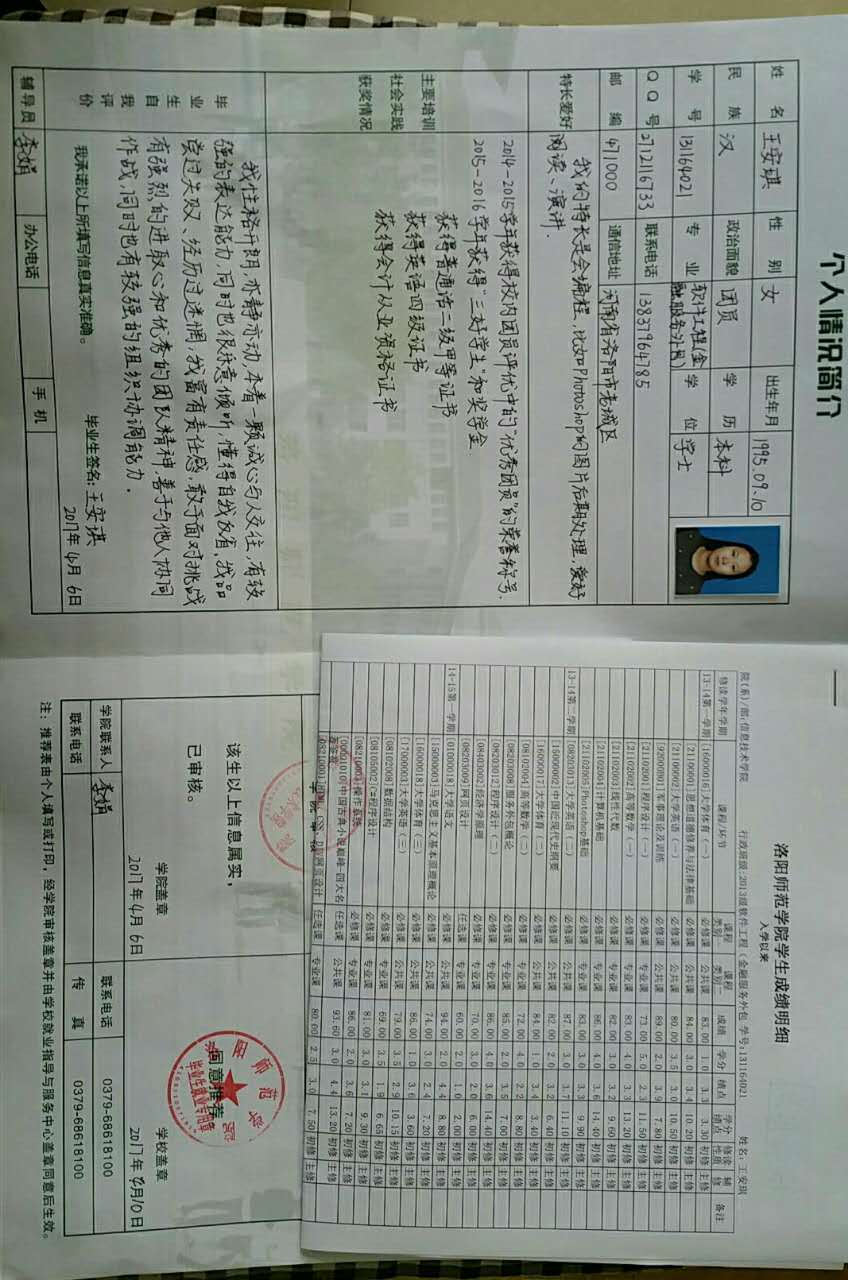 个人情况简介
姓名 王安琪 性别 女 出生年月 1995.09.10
民族 汉 政治面貌 团员 学历 本科
学号 131164021 专业 软件工程(金融服务外包) 学位 学士
QQ号 2712116733 联系电话 13837964785
邮编 471000 通信地址 河南省洛阳市老城区
特长爱好 我的特长是会编程,比如Photoshop的图片后期处理,爱好
阅读、演讲.
主要培训
社会实践
获奖情况
2014-2015学年获得校内团员评优中的"优秀团员"的荣誉称号.
2015-2016学年获得"三好学生"和奖学金
获得普通话二级甲等证书
获得英语四级证书
获得会计从业资格证书
毕业生自我评价
我性格开朗,亦静亦动,本着一颗诚心与人交往,有较
强的表达能力,同时也很乐意倾听,懂得自我反省,我品
尝过失败、经历过迷惘,我富有责任感,敢于面对挑战
有强烈的进取心和优秀的团队精神,善于与他人协同
作战,同时也有较强的组织协调能力.
我承诺以上所填写信息真实准确。
毕业生签名:王安琪
2017年4月6日
辅导员 李娟 办公电话 手机
洛阳师范学院学生成绩明细
入学以来
院(系)/部:信息技术学院 行政班级:2013级软件工程(金融服务外包 学号:131164021 姓名:王安琪
修读学年学期 课程/环节 课程类别一 课程类别二 成绩 学分 绩点 学分绩点 修读性质 辅修 备注
13-14第一学期 [16000016]大学体育(一) 必修课 公共课 83.00 1.0 3.3 3.30 初修 主修
[21100001]思想道德修养与法律基础 必修课 公共课 84.00 3.0 3.4 10.20 初修 主修
[21100002]大学英语(一) 必修课 公共课 80.00 3.5 3.0 10.50 初修 主修
[92000001]军事理论及训练 必修课 公共课 89.00 2.0 3.9 7.80 初修 主修
[21102001]程序设计(一) 必修课 专业课 73.00 5.0 2.3 11.50 初修 主修
[21102002]高等数学(一) 必修课 专业课 83.00 4.0 3.3 13.20 初修 主修
[21102003]线性代数 必修课 专业课 82.00 3.0 3.2 9.60 初修 主修
[21102004]计算机基础 必修课 专业课 86.00 4.0 3.6 14.40 初修 主修
[21102005]Photoshop基础 必修课 专业课 83.00 3.0 3.3 9.90 初修 主修
13-14第二学期 [08201013]大学英语(二) 必修课 公共课 87.00 3.0 3.7 11.10 初修 主修
[16000002]中国近现代史纲要 必修课 公共课 82.00 2.0 3.2 6.40 初修 主修
[16000017]大学体育(二) 必修课 公共课 84.00 1.0 3.4 3.40 初修 主修
[08102004]高等数学(二) 必修课 专业课 72.00 4.0 2.2 8.80 初修 主修
[08203008]服务外包概论 必修课 专业课 85.00 2.0 3.5 7.00 初修 主修
[08203012]程序设计(二) 必修课 专业课 86.00 4.0 3.6 14.40 初修 主修
[08403002]经济学原理 必修课 专业课 70.00 3.0 2.0 6.00 初修 主修
[08203009]网页设计 任选课 专业课 60.00 2.0 1.0 2.00 初修 主修
14-15第一学期 [01000018]大学语文 必修课 公共课 94.00 2.0 4.4 8.80 初修 主修
[15000003]马克思主义基本原理概论 必修课 公共课 74.00 3.0 2.4 7.20 初修 主修
[16000018]大学体育(三) 必修课 公共课 86.00 1.0 3.6 3.60 初修 主修
[17000003]大学英语(三) 必修课 公共课 79.00 3.5 2.9 10.15 初修 主修
[08102008]数据结构 必修课 专业课 69.00 3.5 1.9 6.65 初修 主修
[08105002]C#程序设计 必修课 专业课 81.00 3.0 3.1 9.30 初修 主修
[08210003]操作系统 必修课 专业课 86.00 2.0 3.6 7.20 初修 主修
[00001010]中国古典小说巅峰-四大名 任选课 公共课 93.60 3.0 4.4 13.20 初修 主修
[08210001]HTML、CSS、DIV网页设计 任选课 专业课 80.00 2.5 3.0 7.50 初修 主修
该生以上信息属实,
已审核。
学院盖章
2017年4月6日
同意推荐
洛阳师范学院
毕业生就业专用章
学校盖章
学院联系人 李娟 联系电话 0379-68618100
联系电话 传真 0379-68618100
注:推荐表由个人填写或打印,经学院审核盖章并由学校就业指导与服务中心盖章同意后生效。